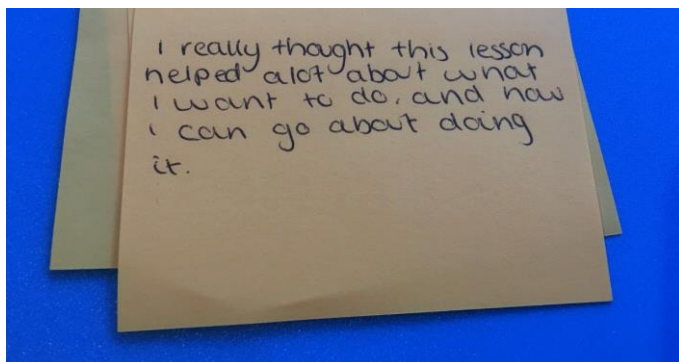 I really thought this lesson
helped alot about what
I want to do. and how
I can go about doing
it.